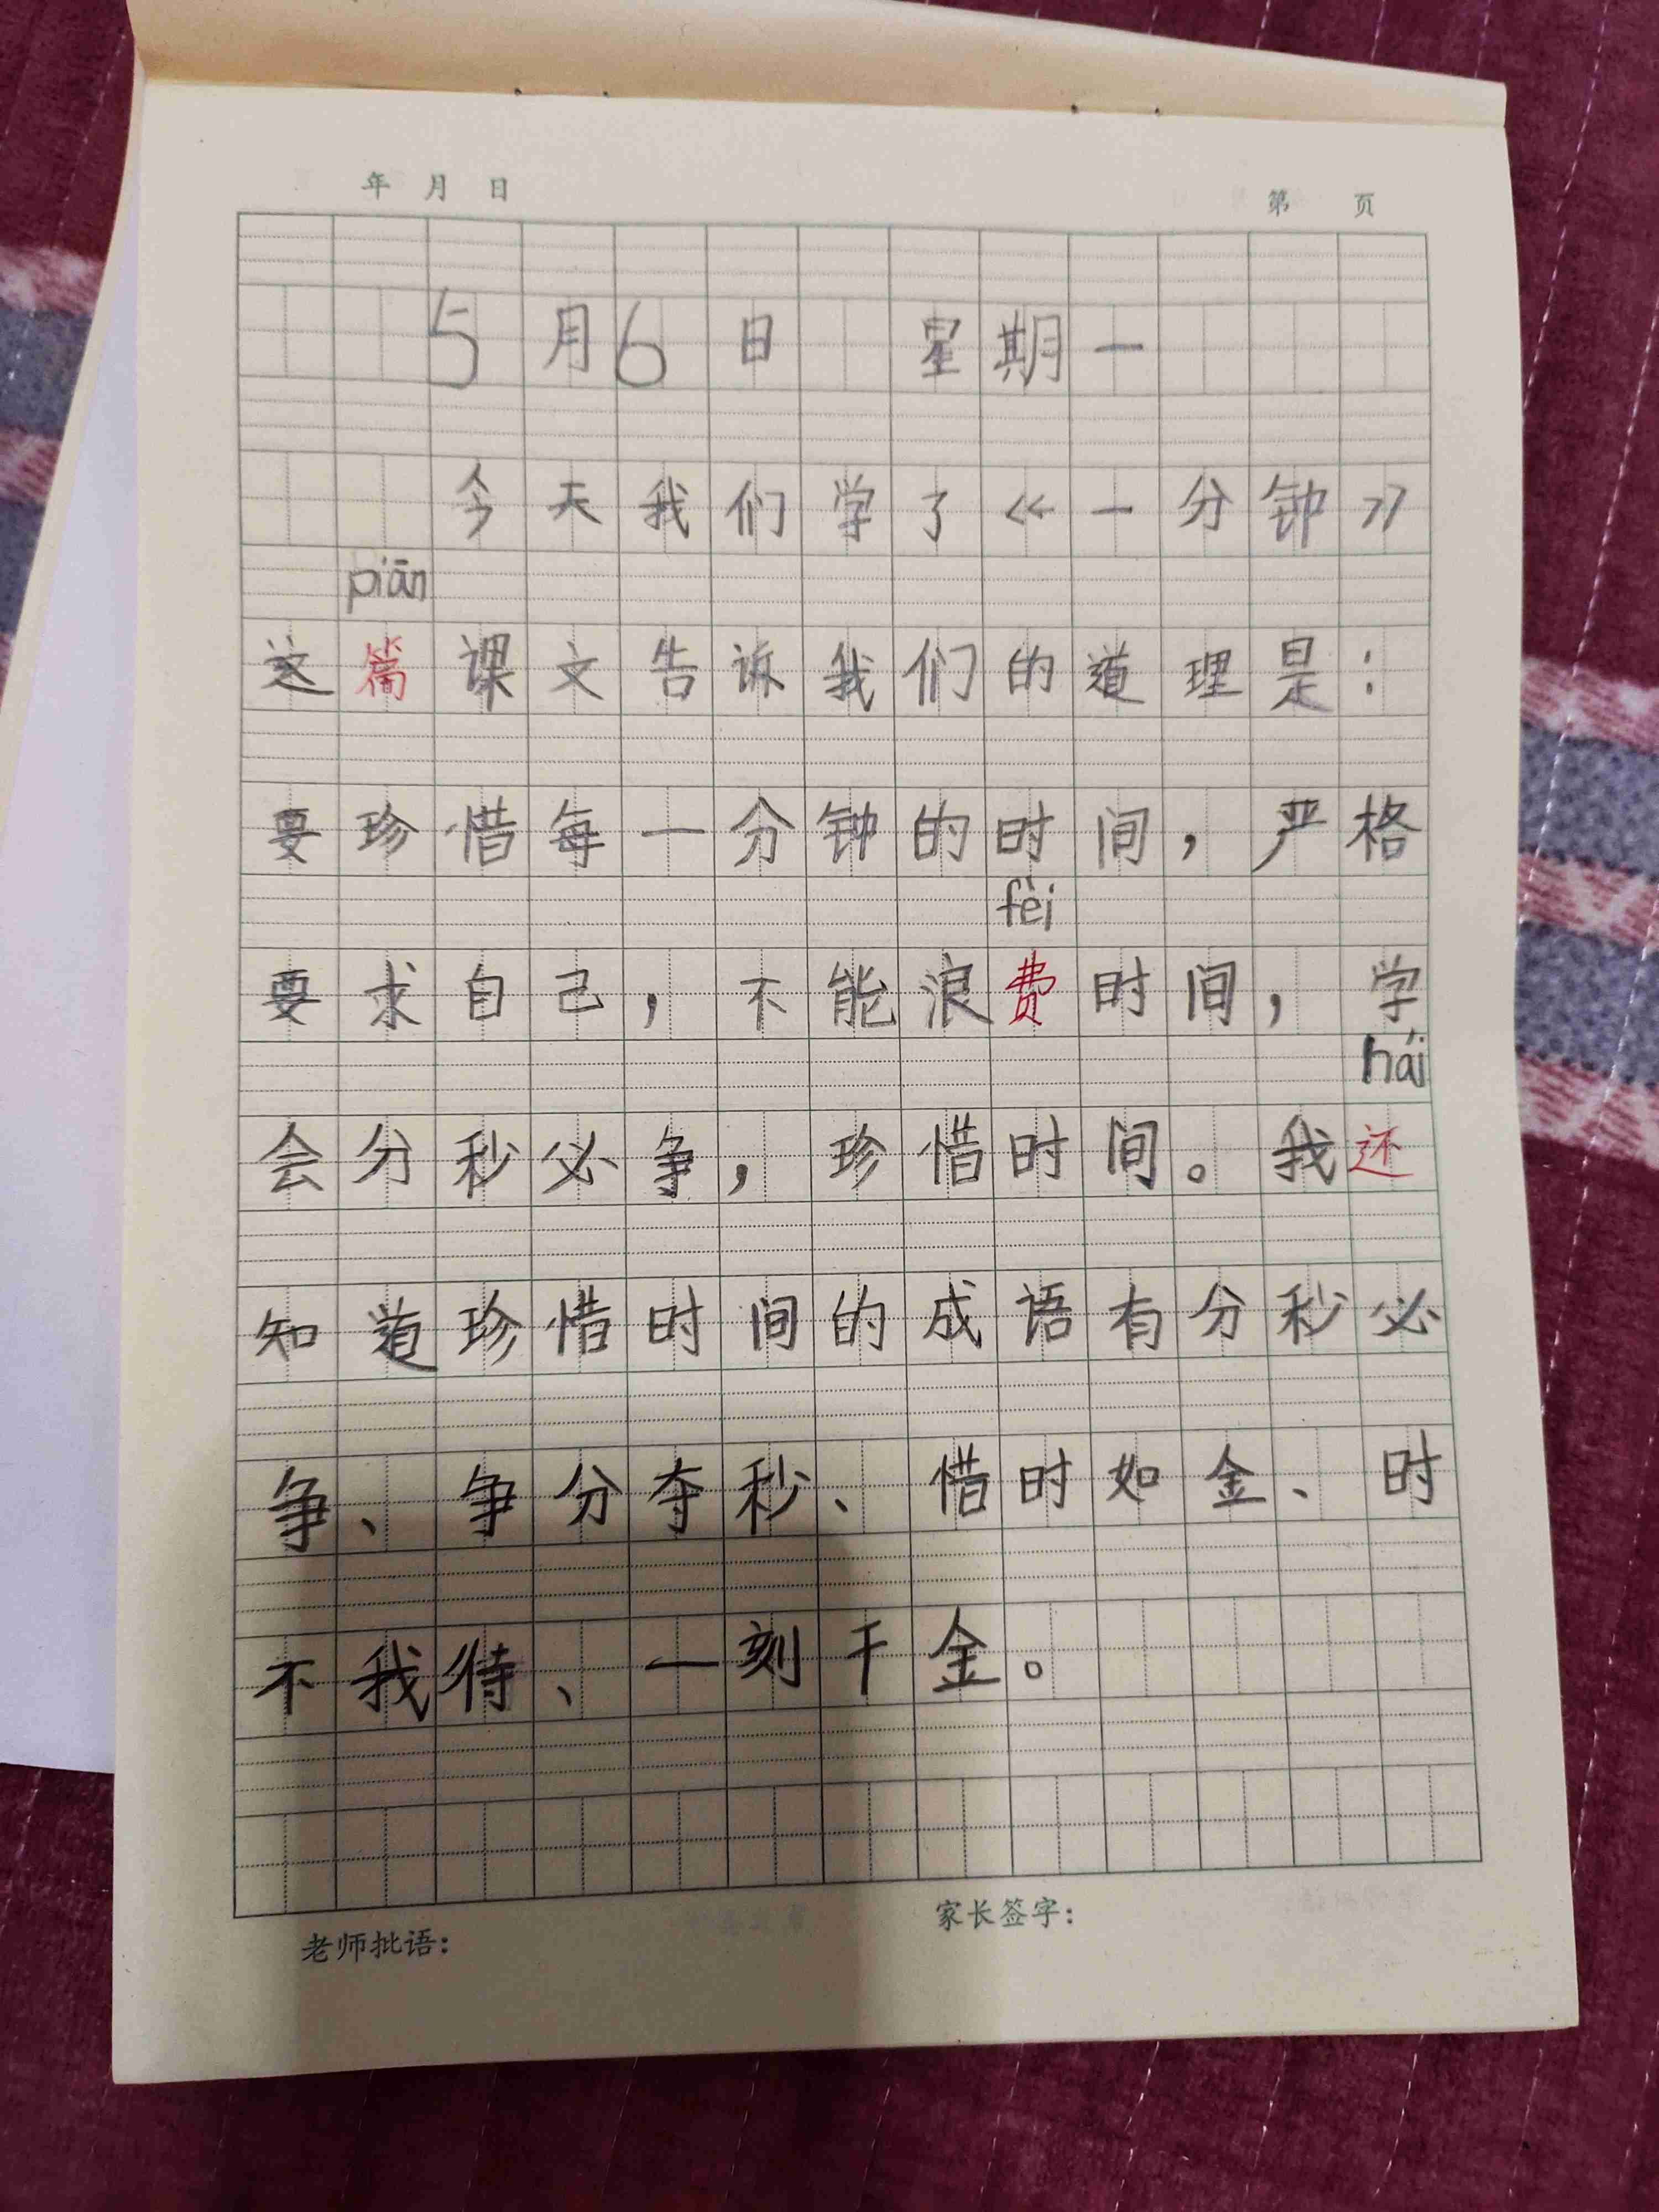 年 月 日 第 页
5月6日 星期一
今天我们学了《一分钟》
piān
这篇课文告诉我们的道理是：
要珍惜每一分钟的时间，严格
fèi
要求自己，不能浪费时间，学
hái
会分秒必争，珍惜时间。我还
知道珍惜时间的成语有分秒必
争、争分夺秒、惜时如金、时
不我待、一刻千金。
老师批语： 家长签字：